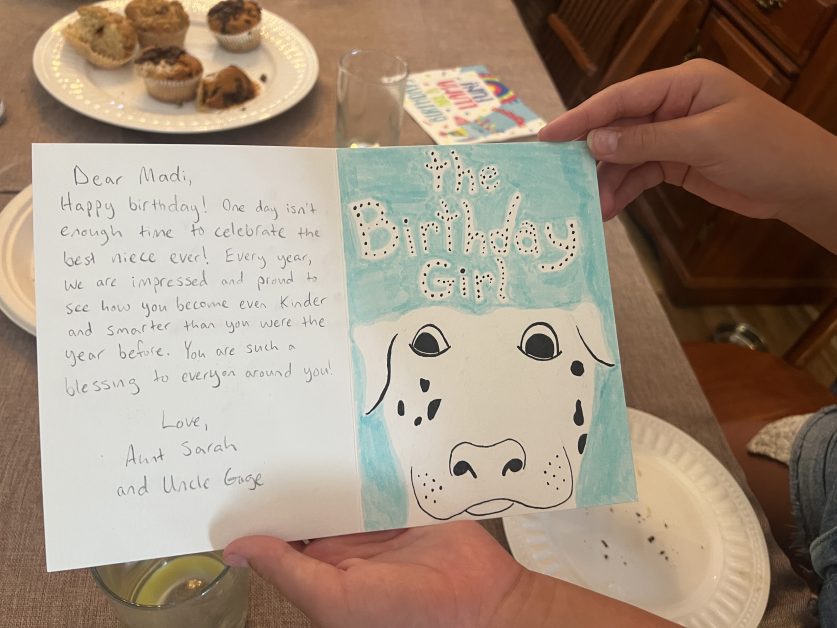 Dear Madi,
Happy birthday! One day isn't
enough time to celebrate the
best niece ever! Every year,
we are impressed and proud to
see how you become even kinder
and smarter than you were the
year before. You are such a
blessing to everyon around you!
Love,
Aunt Sarah
and Uncle Gage
the
Birthday
Girl